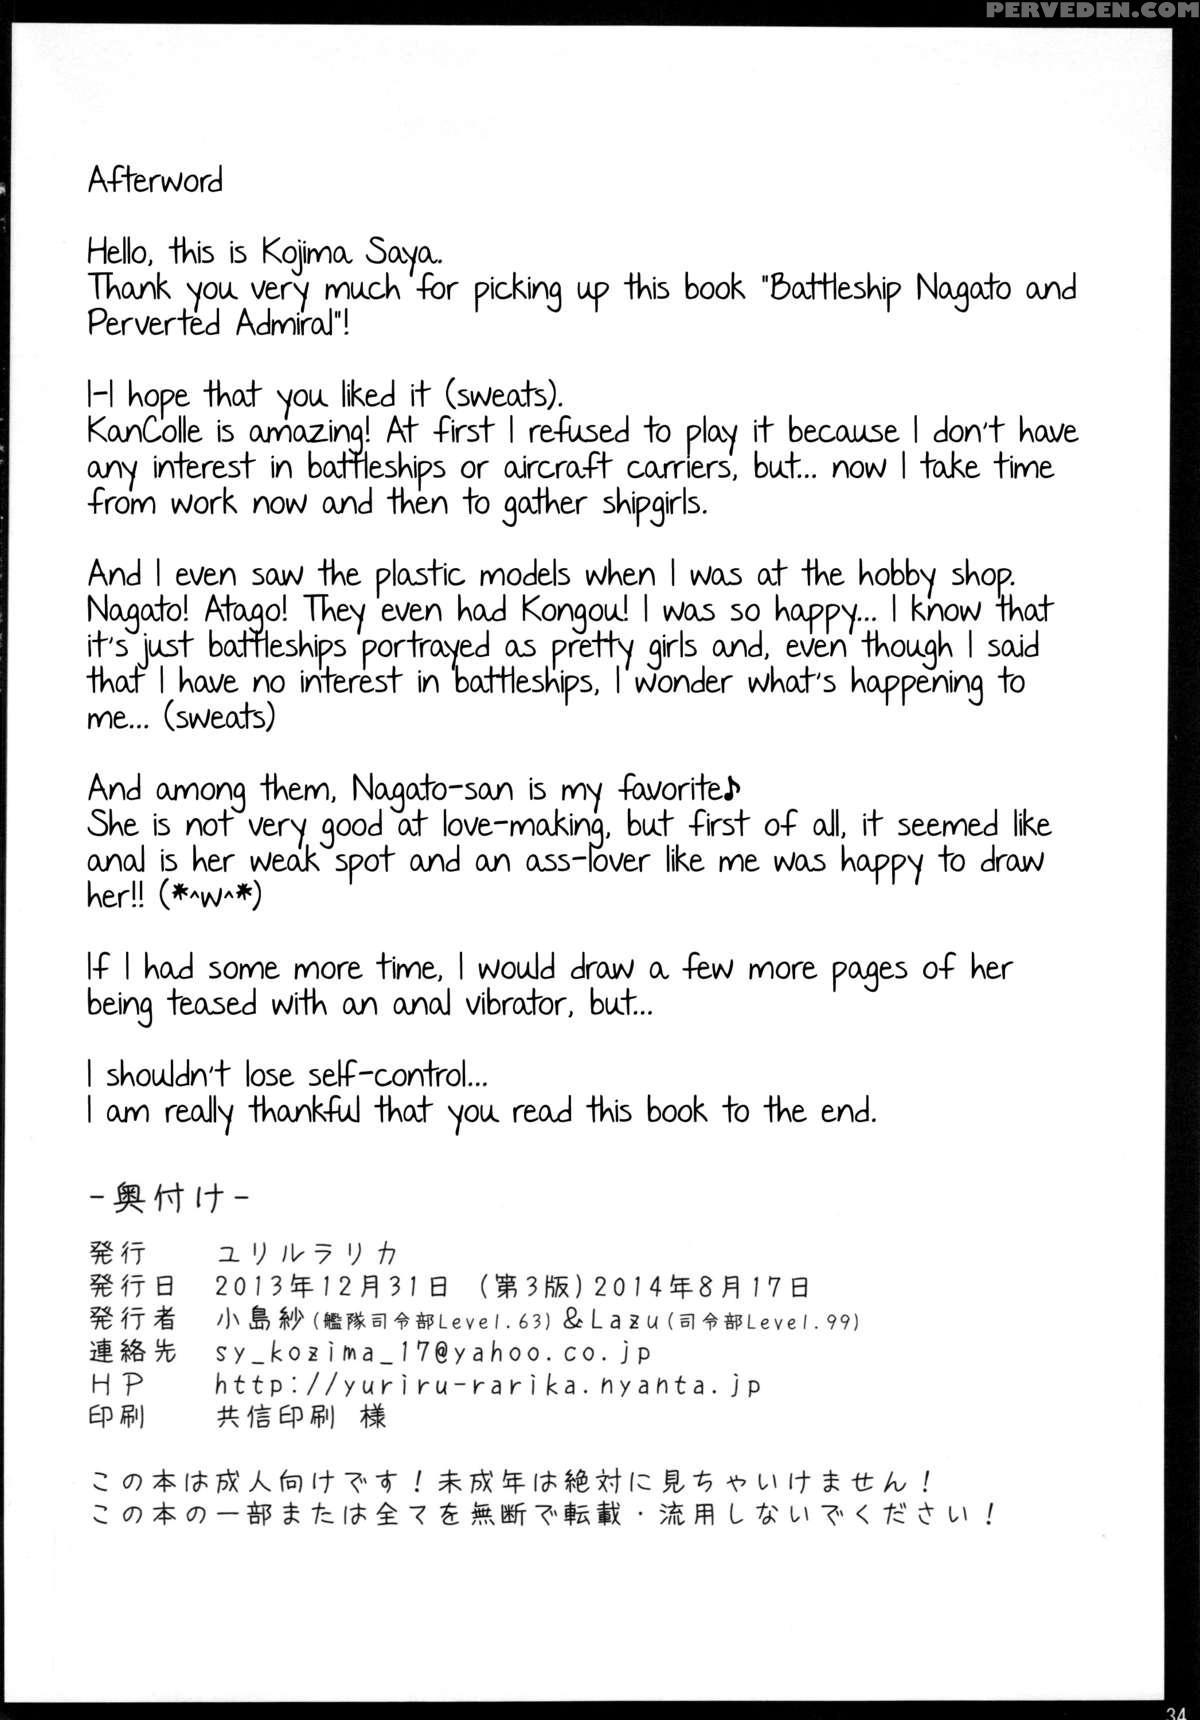 PERVEDEN.COM
Afterword
Hello, this is Kojima Saya.
Thank you very much for picking up this book "Battleship Nagato and
Perverted Admiral"!
I-I hope that you liked it (sweats).
KanColle is amazing! At first I refused to play it because I don't have
any interest in battleships or aircraft carriers, but... now I take time
from work now and then to gather shipgirls.
And I even saw the plastic models when I was at the hobby shop.
Nagato! Atago! They even had Kongou! I was so happy... I know that
it's just battleships portrayed as pretty girls and, even though I said
that I have no interest in battleships, I wonder what's happening to
me... (sweats)
And among them, Nagato-san is my favorite♪
She is not very good at love-making, but first of all, it seemed like
anal is her weak spot and an ass-lover like me was happy to draw
her!! (*^w^*)
If I had some more time, I would draw a few more pages of her
being teased with an anal vibrator, but...
I shouldn't lose self-control...
I am really thankful that you read this book to the end.
-奥付け-
発行 ユリルラリカ
発行日 2013年12月31日 (第3版)2014年8月17日
発行者 小島紗(艦隊司令部Level.63)&Lazu(司令部Level.99)
連絡先 sy_kozima_17@yahoo.co.jp
HP http://yuriru-rarika.nyanta.jp
印刷 共信印刷 様
この本は成人向けです！未成年は絶対に見ちゃいけません！
この本の一部または全てを無断で転載・流用しないでください！
34